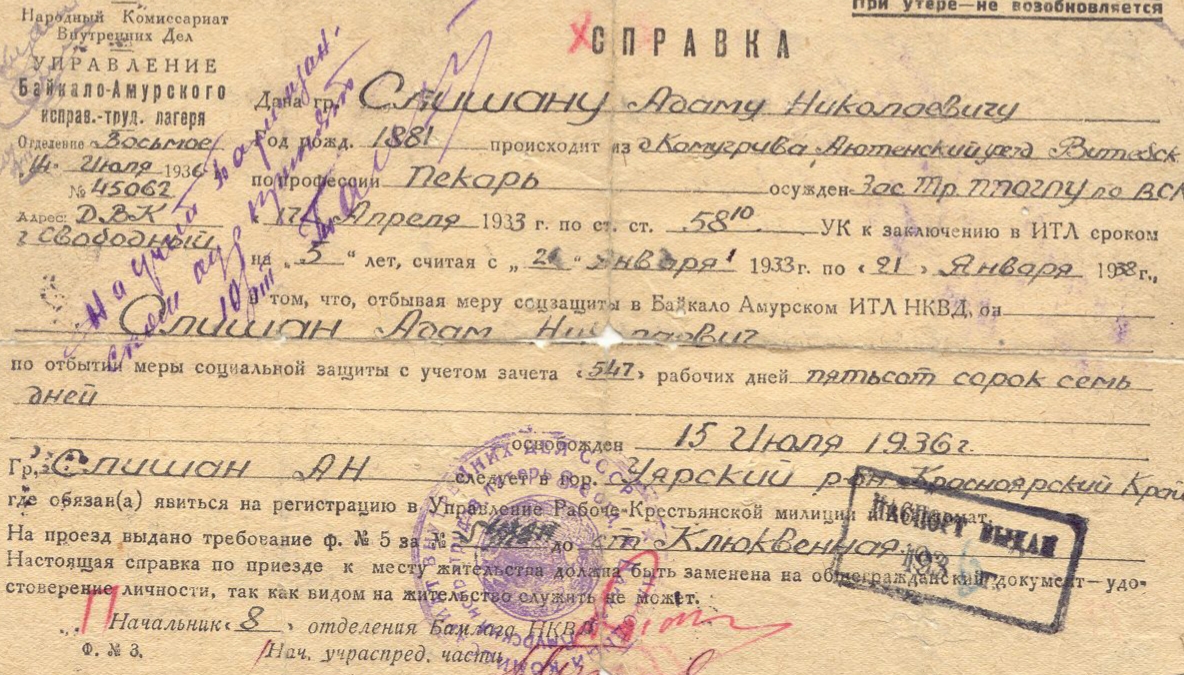 При утере—не возобновляется
Народный Комиссариат
Внутренних Дел
УПРАВЛЕНИЕ
Байкало-Амурского
исправ.-труд. лагеря
Отделение Восьмое
14 Июля 1936
№ 45062
Адрес: ДВК
г Свободный
СПРАВКА
Дана гр. Слишану Адаму Николаевичу
Год рожд. 1881 происходит из Витебск
по профессии Пекарь осужден Зас Тр ППОГПУ по ВСК
„17 Апреля 1933 г. по ст. ст. 58¹⁰ УК к заключению в ИТЛ сроком
на „5“ лет, считая с „21“ января 1933г. по «21» Января 1938г.,
в том, что, отбывая меру соцзащиты в Байкало Амурском ИТЛ НКВД, он
Слишан Адам
по отбытии меры социальной защиты с учетом зачета «547» рабочих дней пятьсот сорок семь
дней
освобожден 15 Июля 1936г.
Гр. Слишан АН следует в гор. Уярский р-он Красноярский Край
где обязан(а) явиться на регистрацию в Управление Рабоче-Крестьянской милиции
На проезд выдано требование ф. № 5 за № до ст Клюквенная
Настоящая справка по приезде к месту жительства должна быть заменена на общегражданский документ—удо-
стоверение личности, так как видом на жительство служить не может.
Начальник «8» отделения Бамлага НКВД
Ф. № 3. Нач. учраспред. части
ПАСПОРТ ВЫДАН
193 6 г.